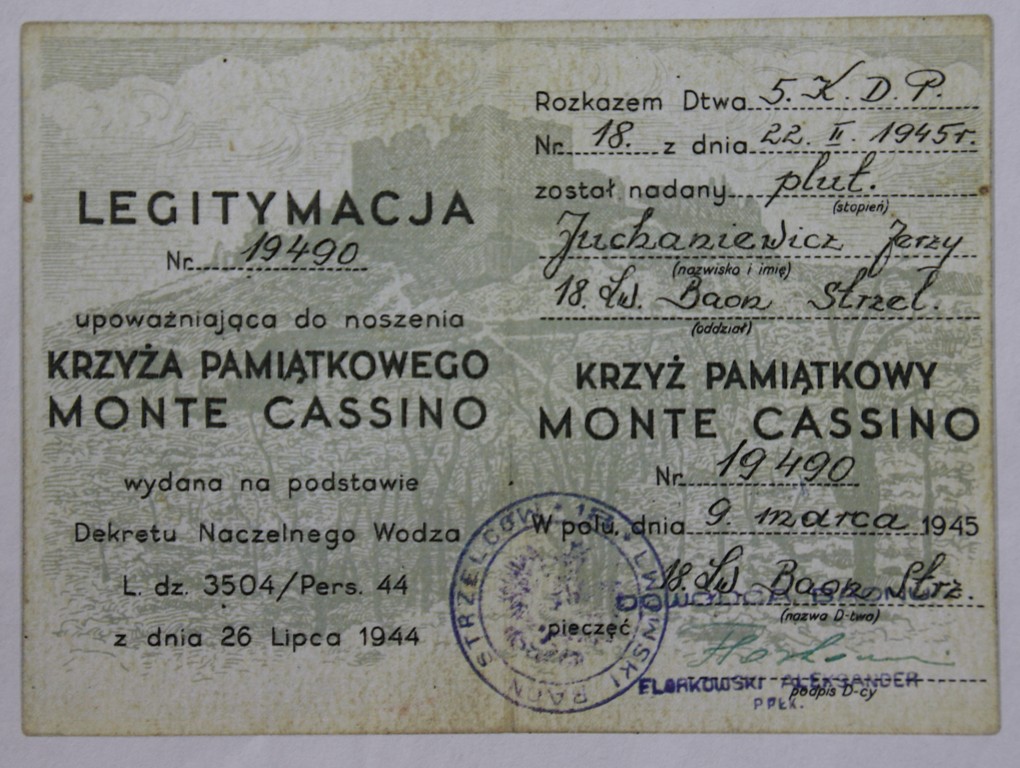 LEGITYMACJA
Nr. 19490
upoważniająca do noszenia
KRZYŻA PAMIĄTKOWEGO
MONTE CASSINO
wydana na podstawie
Dekretu Naczelnego Wodza
L. dz. 3504/Pers. 44
z dnia 26 Lipca 1944
Rozkazem Dtwa 5. K. D. P.
Nr. 18. z dnia 22. II. 1945 r.
został nadany plut.
(stopień)
Juchaniewicz Jerzy
(nazwisko i imię)
18. Lw. Baon Strzel.
(oddział)
KRZYŻ PAMIĄTKOWY
MONTE CASSINO
Nr. 19490
W polu, dnia 9. marca 1945
18. Lw. Baon Strz.
DOWÓDCA BAONU
(nazwa D-twa)
pieczęć
FLORKOWSKI ALEKSANDER
podpis D-cy
PPŁK.
LWOWSKI BAON STRZELCÓW